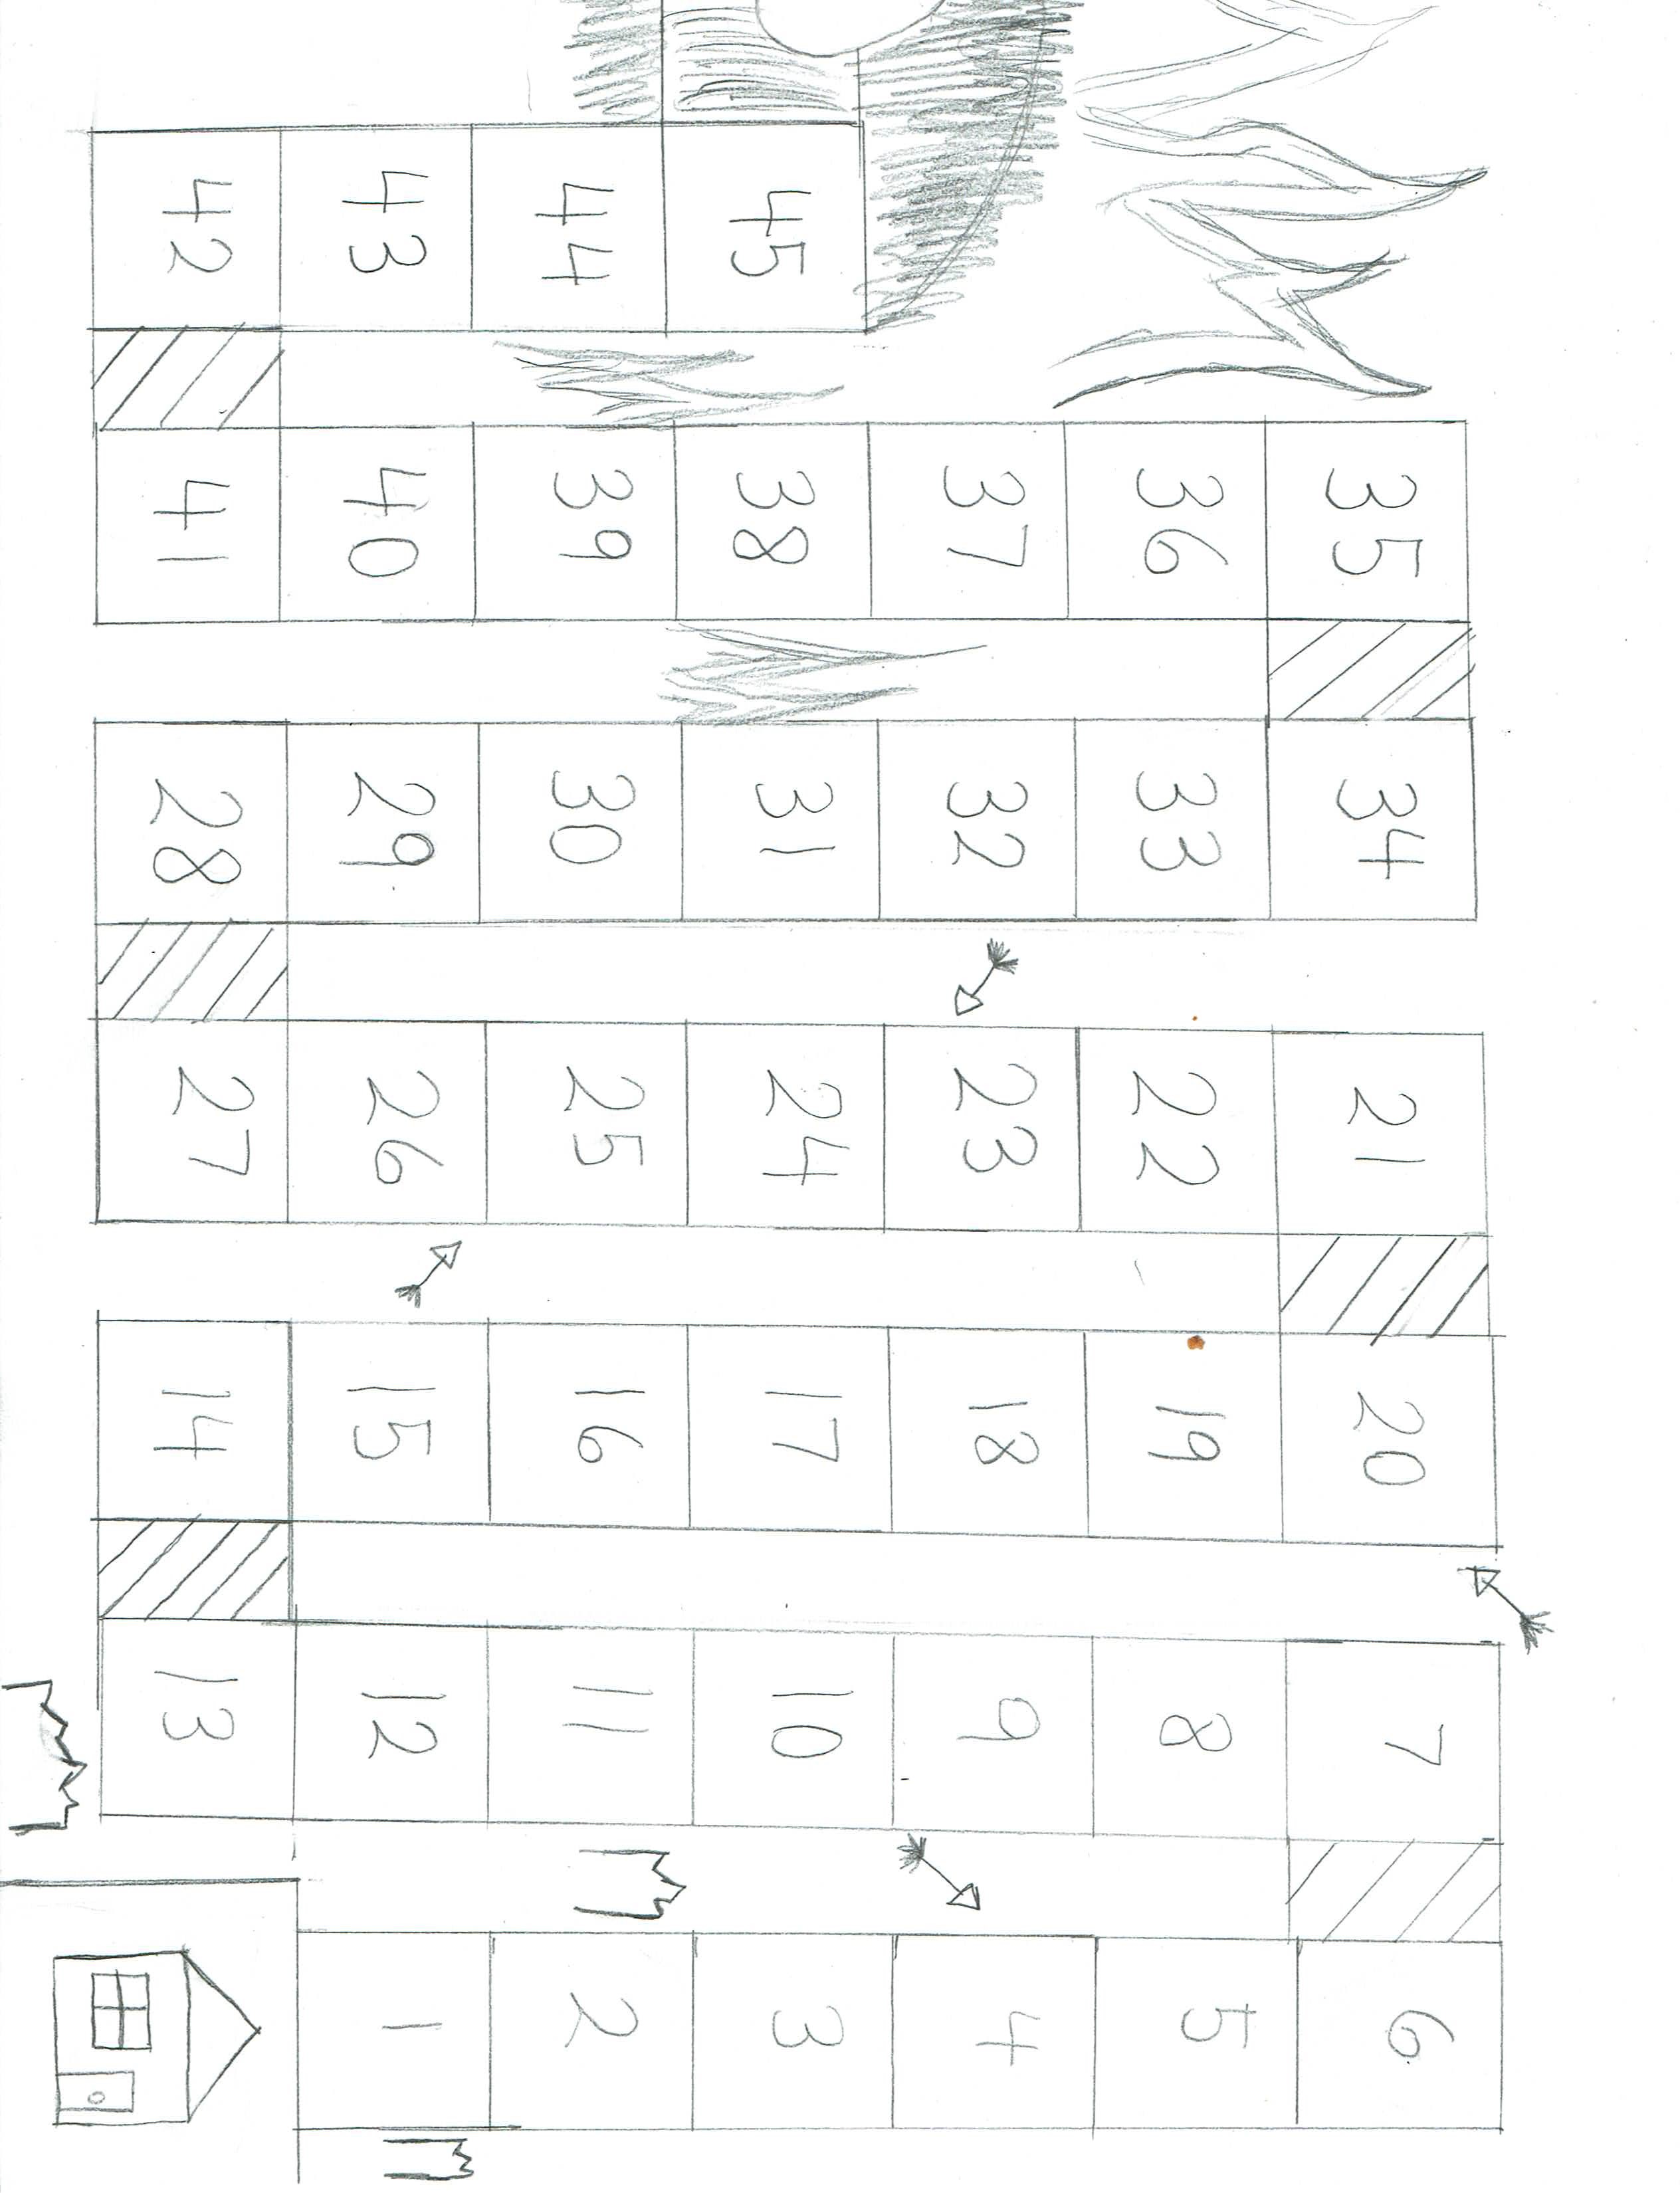 35 34 21 20 7 6
36 33 22 19 8 5
37 32 23 18 9 4
45 38 31 24 17 10 3
44 39 30 25 16 11 2
43 40 29 26 15 12 1
42 41 28 27 14 13